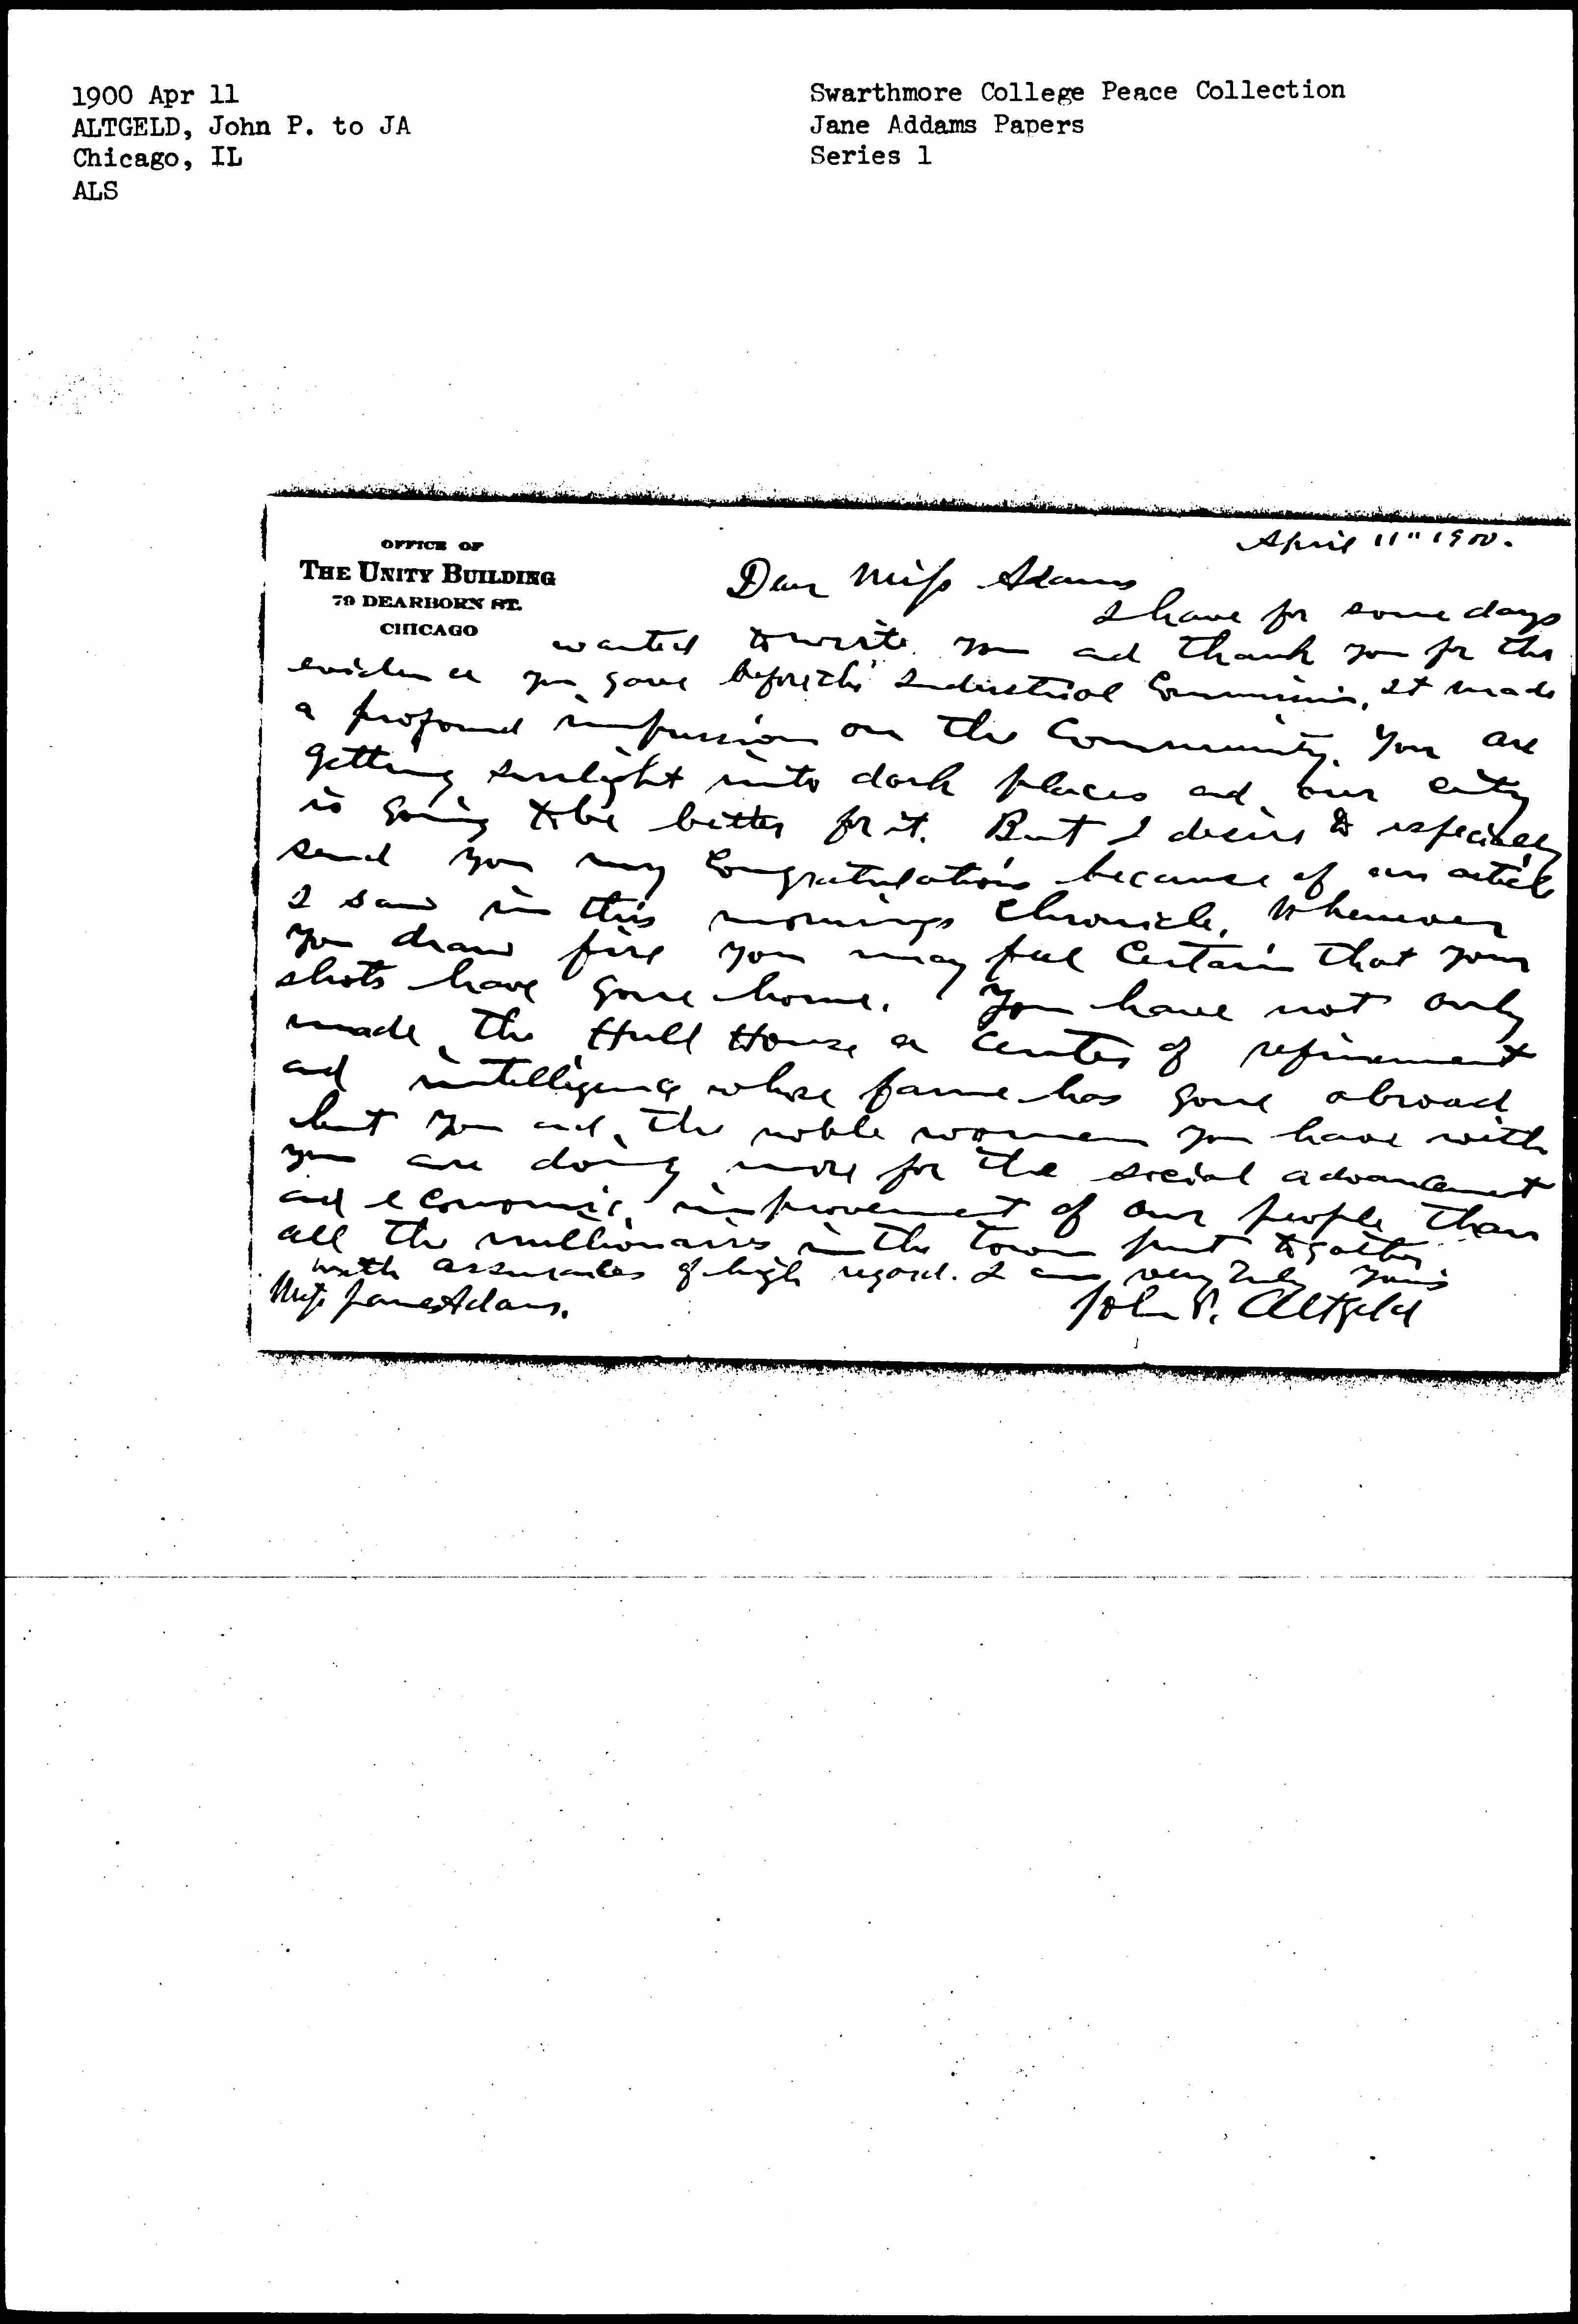 1900 Apr 11
ALTGELD, John P. to JA
Chicago, IL
ALS
Swarthmore College Peace Collection
Jane Addams Papers
Series 1
OFFICE OF
THE UNITY BUILDING
79 DEARBORN ST.
CHICAGO
April 11" 1900.
Dear Miss Adams
I have for some days
wanted to write you and thank you for the
evidence you gave before the Industrial Commission, it made
a profound impression on the Community. You are
getting sunlight into dark places and our city
is going to be better for it. But I desire to especially
send you my Congratulations because of an article
I saw in this mornings Chronicle, Whenever
you draw fire you may feel Certain that your
shots have gone home. You have not only
made the Hull House a Center of refinement
and intelligence whose fame has gone abroad
but you and the noble women you have with
you are doing more for the social advancement
and economic improvement of our people than
all the millionaires in the town put together
with assurances of high regard. I am very truly yours
John P. Altgeld
Miss Jane Adams.